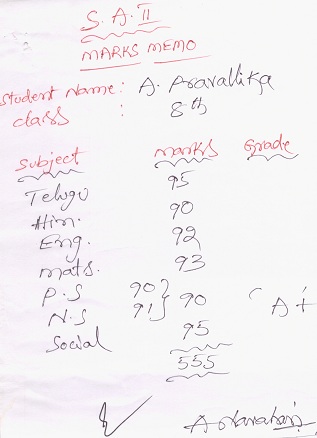 S. A. II
MARKS MEMO
Student Name : A. Aravallika
class : 8th
Subject marks Grade
Telugu 95
Hin. 90
Eng. 92
mats. 93
P.S 90 } 90 A+
N.S 91
Social 95
555